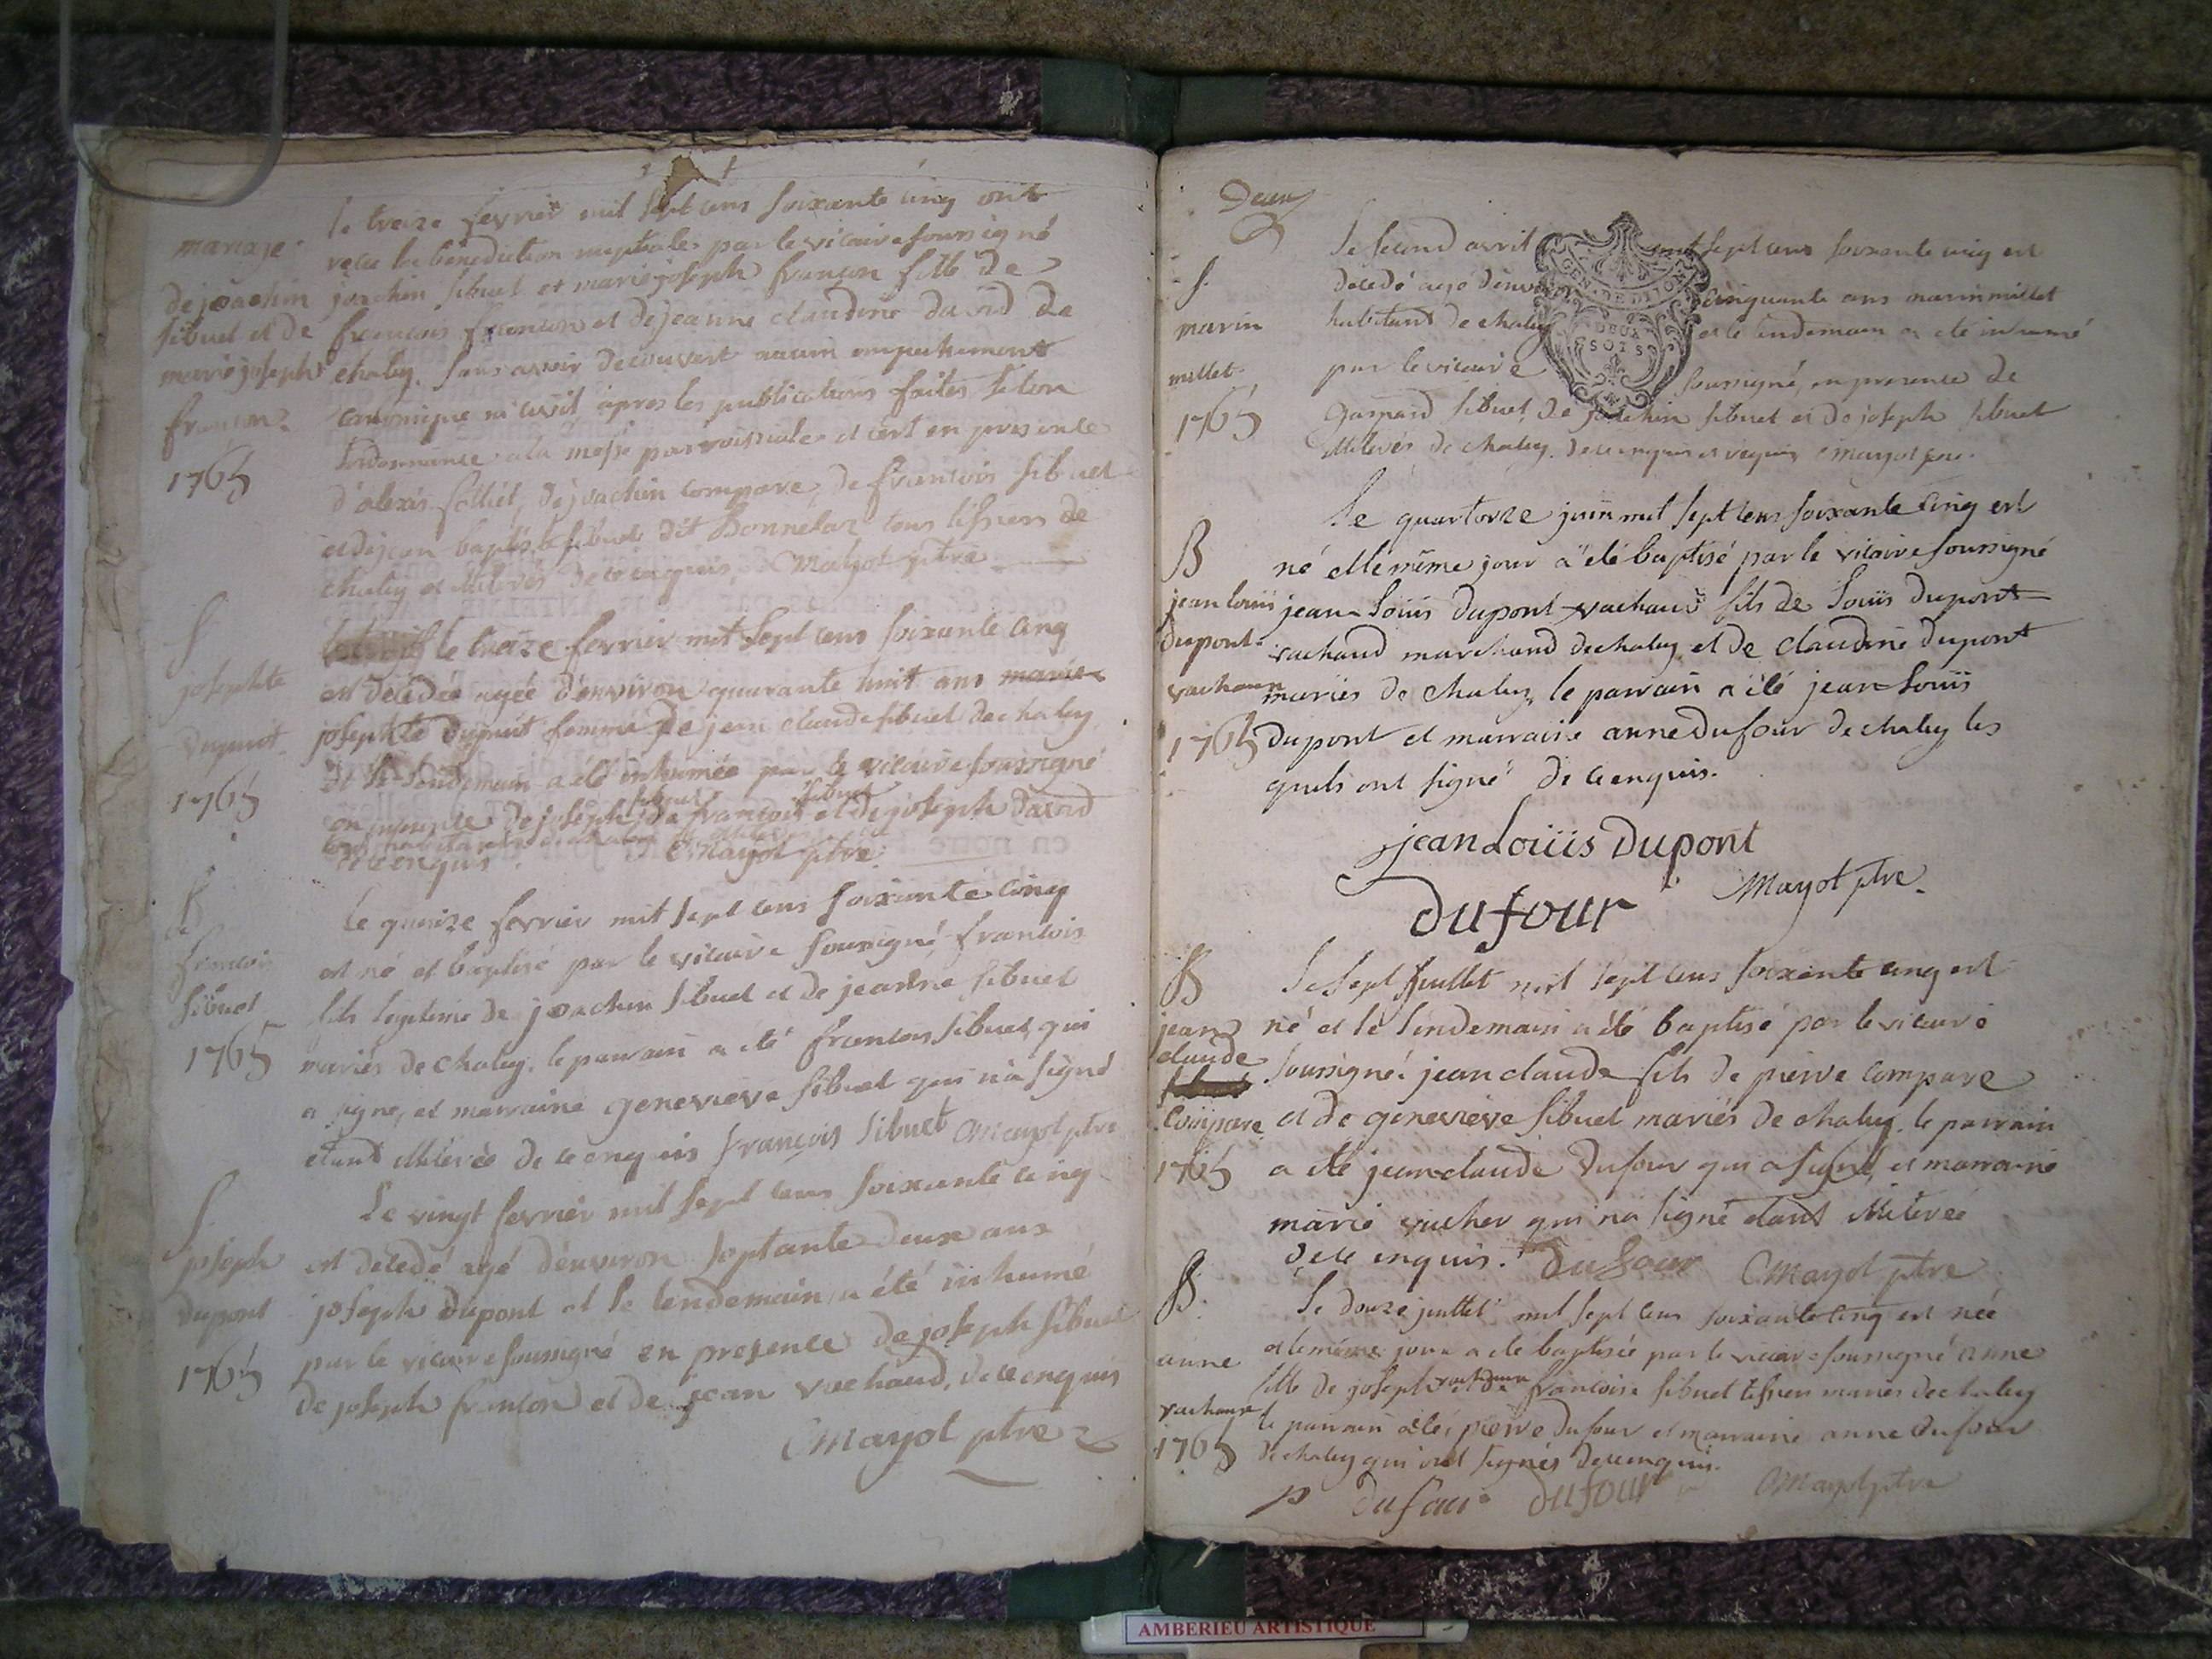 mariage
de joachin
sibuet et de
marie joseph
françon
1765
le treize fevrier mil sept cens soixante cinq ont
reçu la bénédiction nuptiale par le vicaire soussigné
joachin sibuet et marie joseph françon fille de
francois françon et de jeanne claudine david de
chaley. sans avoir decouvert aucun empechement
canonique ni civil, apres les publications faites selon
l'ordonnance a la messe parroissiale et c'est en presence
d'alexis folliet, de joachin compare, de francois sibuet
et de jean baptiste sibuet dit Bonnelaz tous tissiers de
chaley et illiterés de ce enquis. Mayot ptre
S
josephte
dupuit
1765
le treize fevrier mil sept cens soixante cinq
est décédée agée d'environ quarante huit ans marie
josephte dupuit femme de jean claude sibuet de chaley
et le lendemain a été inhumée par le vicaire soussigné
en presence de joseph sibuet de francois sibuet et de joseph david
tous habitants de chaley
de ce enquis Mayot ptre
B
francois
sibuet
1765
le quinze fevrier mil sept cens soixante cinq
est né et baptisé par le vicaire soussigné, francois
fils legitime de joachin sibuet et de jeanne sibuet
mariés de chaley. le parrain a été francois sibuet, qui
a signé, et marraine genevieve sibuet qui n'a signé
etant illiterée de ce enquis françois sibuet Mayot ptre
S
joseph
dupont
1765
Le vingt fevrier mil sept cens soixante cinq
est décédé agé d'environ septante deux ans
joseph dupont et le lendemain a été inhumé
par le vicaire soussigné en presence de joseph sibuet
de joseph françon et de jean vachaud, de ce enquis
Mayot ptre
Deux
S.
marin
millet
1765
Le second avril mil sept cens soixante cinq est
décédé agé d'environ cinquante ans marin millet
habitant de chaley et le lendemain a été inhumé
par le vicaire soussigné, en presence de
GEN. DE DIJON
DEUX
SOLS
gaspard sibuet, de joachin sibuet et de joseph sibuet
illiterés de chaley. de ce enquis et requis Mayot ptre.
B
jean louis
dupont
vachaud
1765
Le quartorze juin mil sept cens soixante cinq est
né et le même jour a été baptisé par le vicaire soussigné
jean Louis dupont vachaud fils de Louis dupont
vachaud marchand de chaley et de claudine dupont
mariés de chaley, le parrain a été jean Louis
dupont et marraine anne dufour de chaley les
quels ont signé de ce enquis.
jean Louis Dupont
dufour Mayot ptre.
B
jean
claude
compare
1765
Le sept juillet mil sept cens soixante cinq est
né et le lendemain a été baptisé par le vicaire
soussigné jean claude fils de pierre compare
et de genevieve sibuet mariés de chaley. le parrain
a été jean claude dufour qui a signé, et marraine
marie vucher qui n'a signé etant illiterée
de ce enquis. dufour Mayot ptre
B.
anne
vachaud
1765
Le douze juillet mil sept cens soixante cinq est née
et le même jour a été baptisée par le vicaire soussigné anne
fille de joseph vachaud et de francoise sibuet tissier mariés de chaley
le parrain a été pierre dufour et marraine anne dufour
de chaley qui ont signés de ce enquis.
p dufour dufour Mayot ptre
AMBERIEU ARTISTIQUE